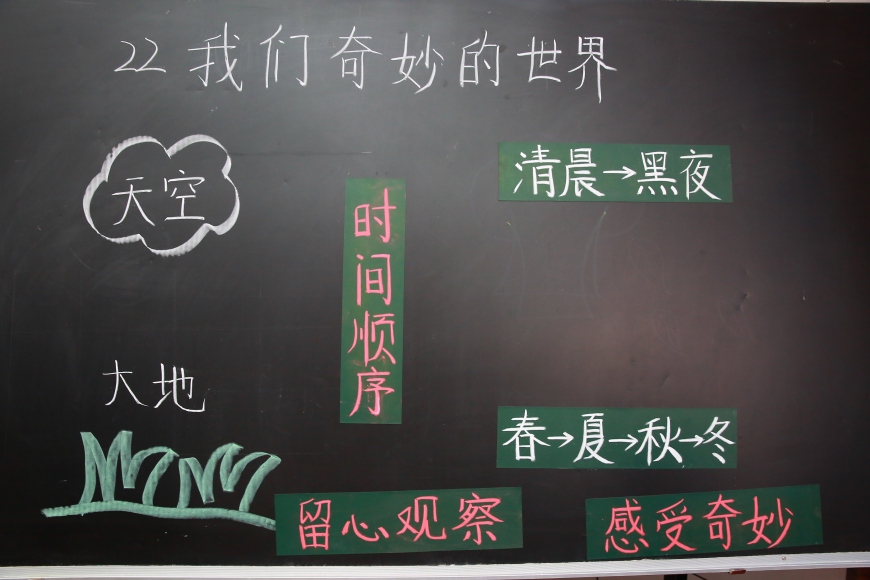 22 我们奇妙的世界
天空
清晨→黑夜
时间顺序
大地
春→夏→秋→冬
留心观察
感受奇妙